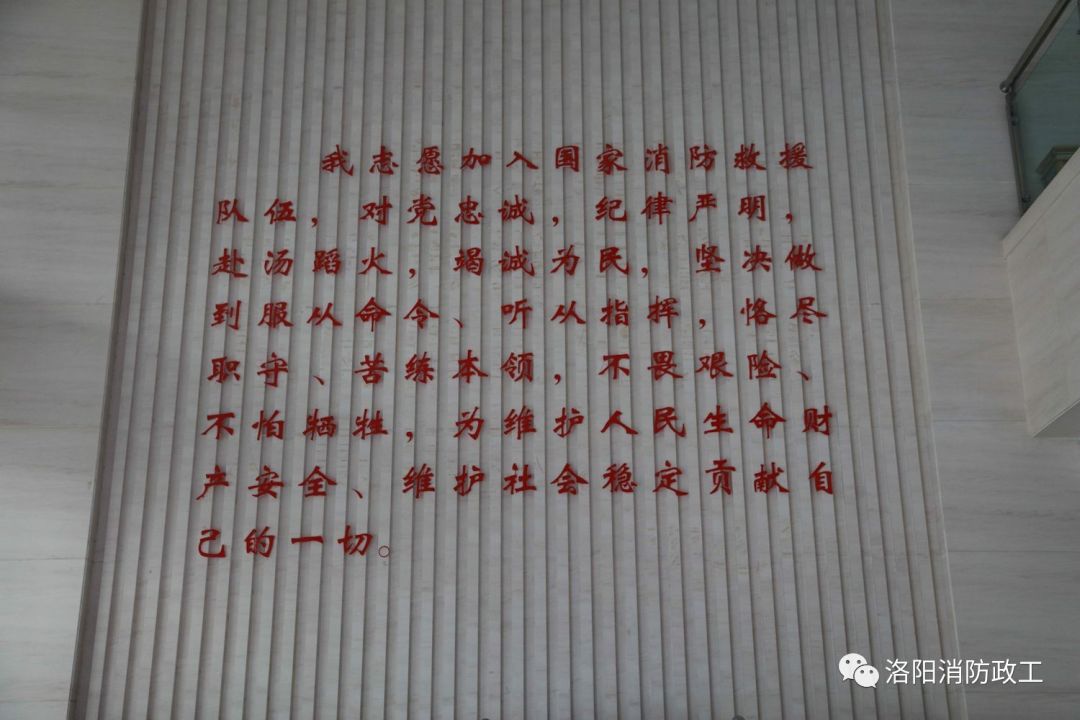 我志愿加入国家消防救援
队伍，对党忠诚，纪律严明，
赴汤蹈火，竭诚为民，坚决做
到服从命令、听从指挥，恪尽
职守、苦练本领，不畏艰险、
不怕牺牲，为维护人民生命财
产安全、维护社会稳定贡献自
己的一切。
洛阳消防政工